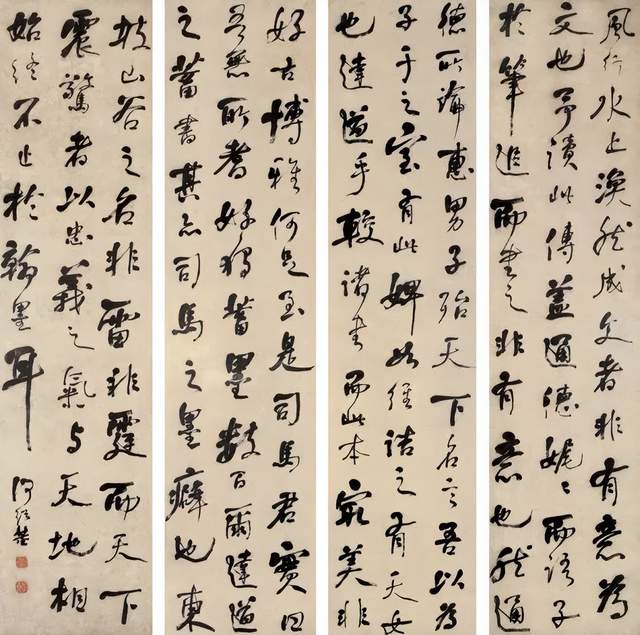 風行水上渙然成文者非有意為
文也予讀此傳蓋通德娓々而語子
於筆追而書之非有意也然通
德所論惠男子殆天下名言吾以為
子于之室有此婢如維詰之有天女
也達道手較諸書而此本最美非
好古博雅何足至是司馬君實曰
吾無所耆好獨蓄墨數百爾達道
之蓄書其亦司馬之墨癖也東
坡山谷之名非雷非霆而天下
震驚者以忠義之氣与天地相
始終不止於翰墨耳
何紹基